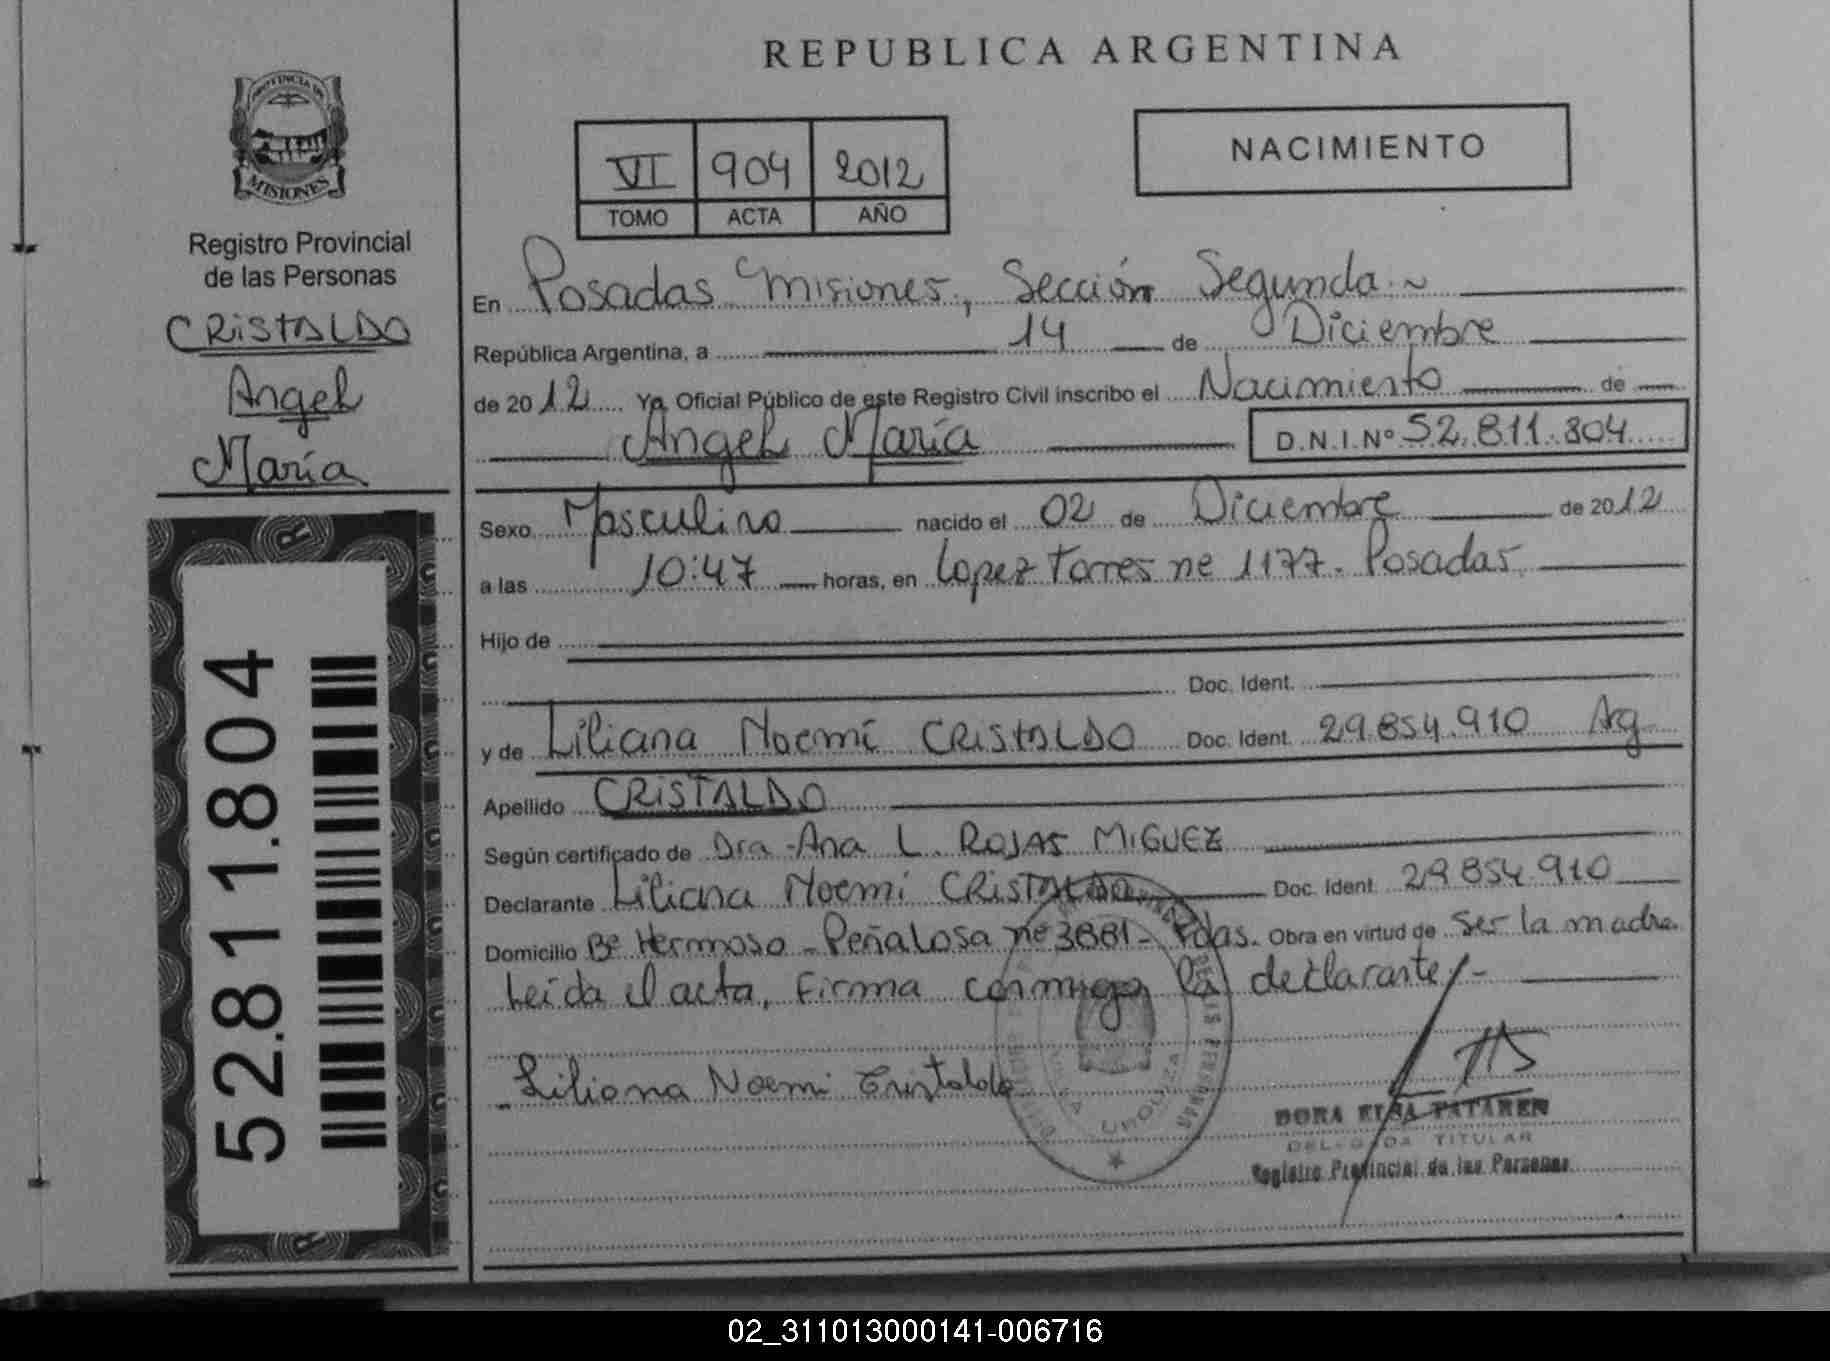 REPUBLICA ARGENTINA
PROVINCIA DE
MISIONES
Registro Provincial
de las Personas
CRISTALDO
Angel
María
52.811.804
VI 904 2012
TOMO ACTA AÑO
NACIMIENTO
En Posadas Misiones, Sección Segunda
República Argentina, a 14 de Diciembre
de 2012 Yo Oficial Público de este Registro Civil inscribo el Nacimiento de
Angel María D.N.I.Nº 52.811.804
Sexo Masculino nacido el 02 de Diciembre de 2012
a las 10:47 horas, en Lopez Torres nº 1177. Posadas
Hijo de
Doc. Ident.
y de Liliana Noemí CRISTALDO Doc. Ident. 29.854.910 Arg
Apellido CRISTALDO
Según certificado de Dra. Ana L. ROJAS MIGUEZ
Declarante Liliana Noemí CRISTALDO Doc. Ident. 29.854.910
Domicilio Bº Hermoso - Peñalosa nº 3881 - Pdas. Obra en virtud de ser la madre
Leída el acta, firma conmigo la declarante.-
Liliana Noemi Cristaldo
DORA ELSA TATAREN
DELEGADA TITULAR
Registro Provincial de las Personas
02_311013000141-006716